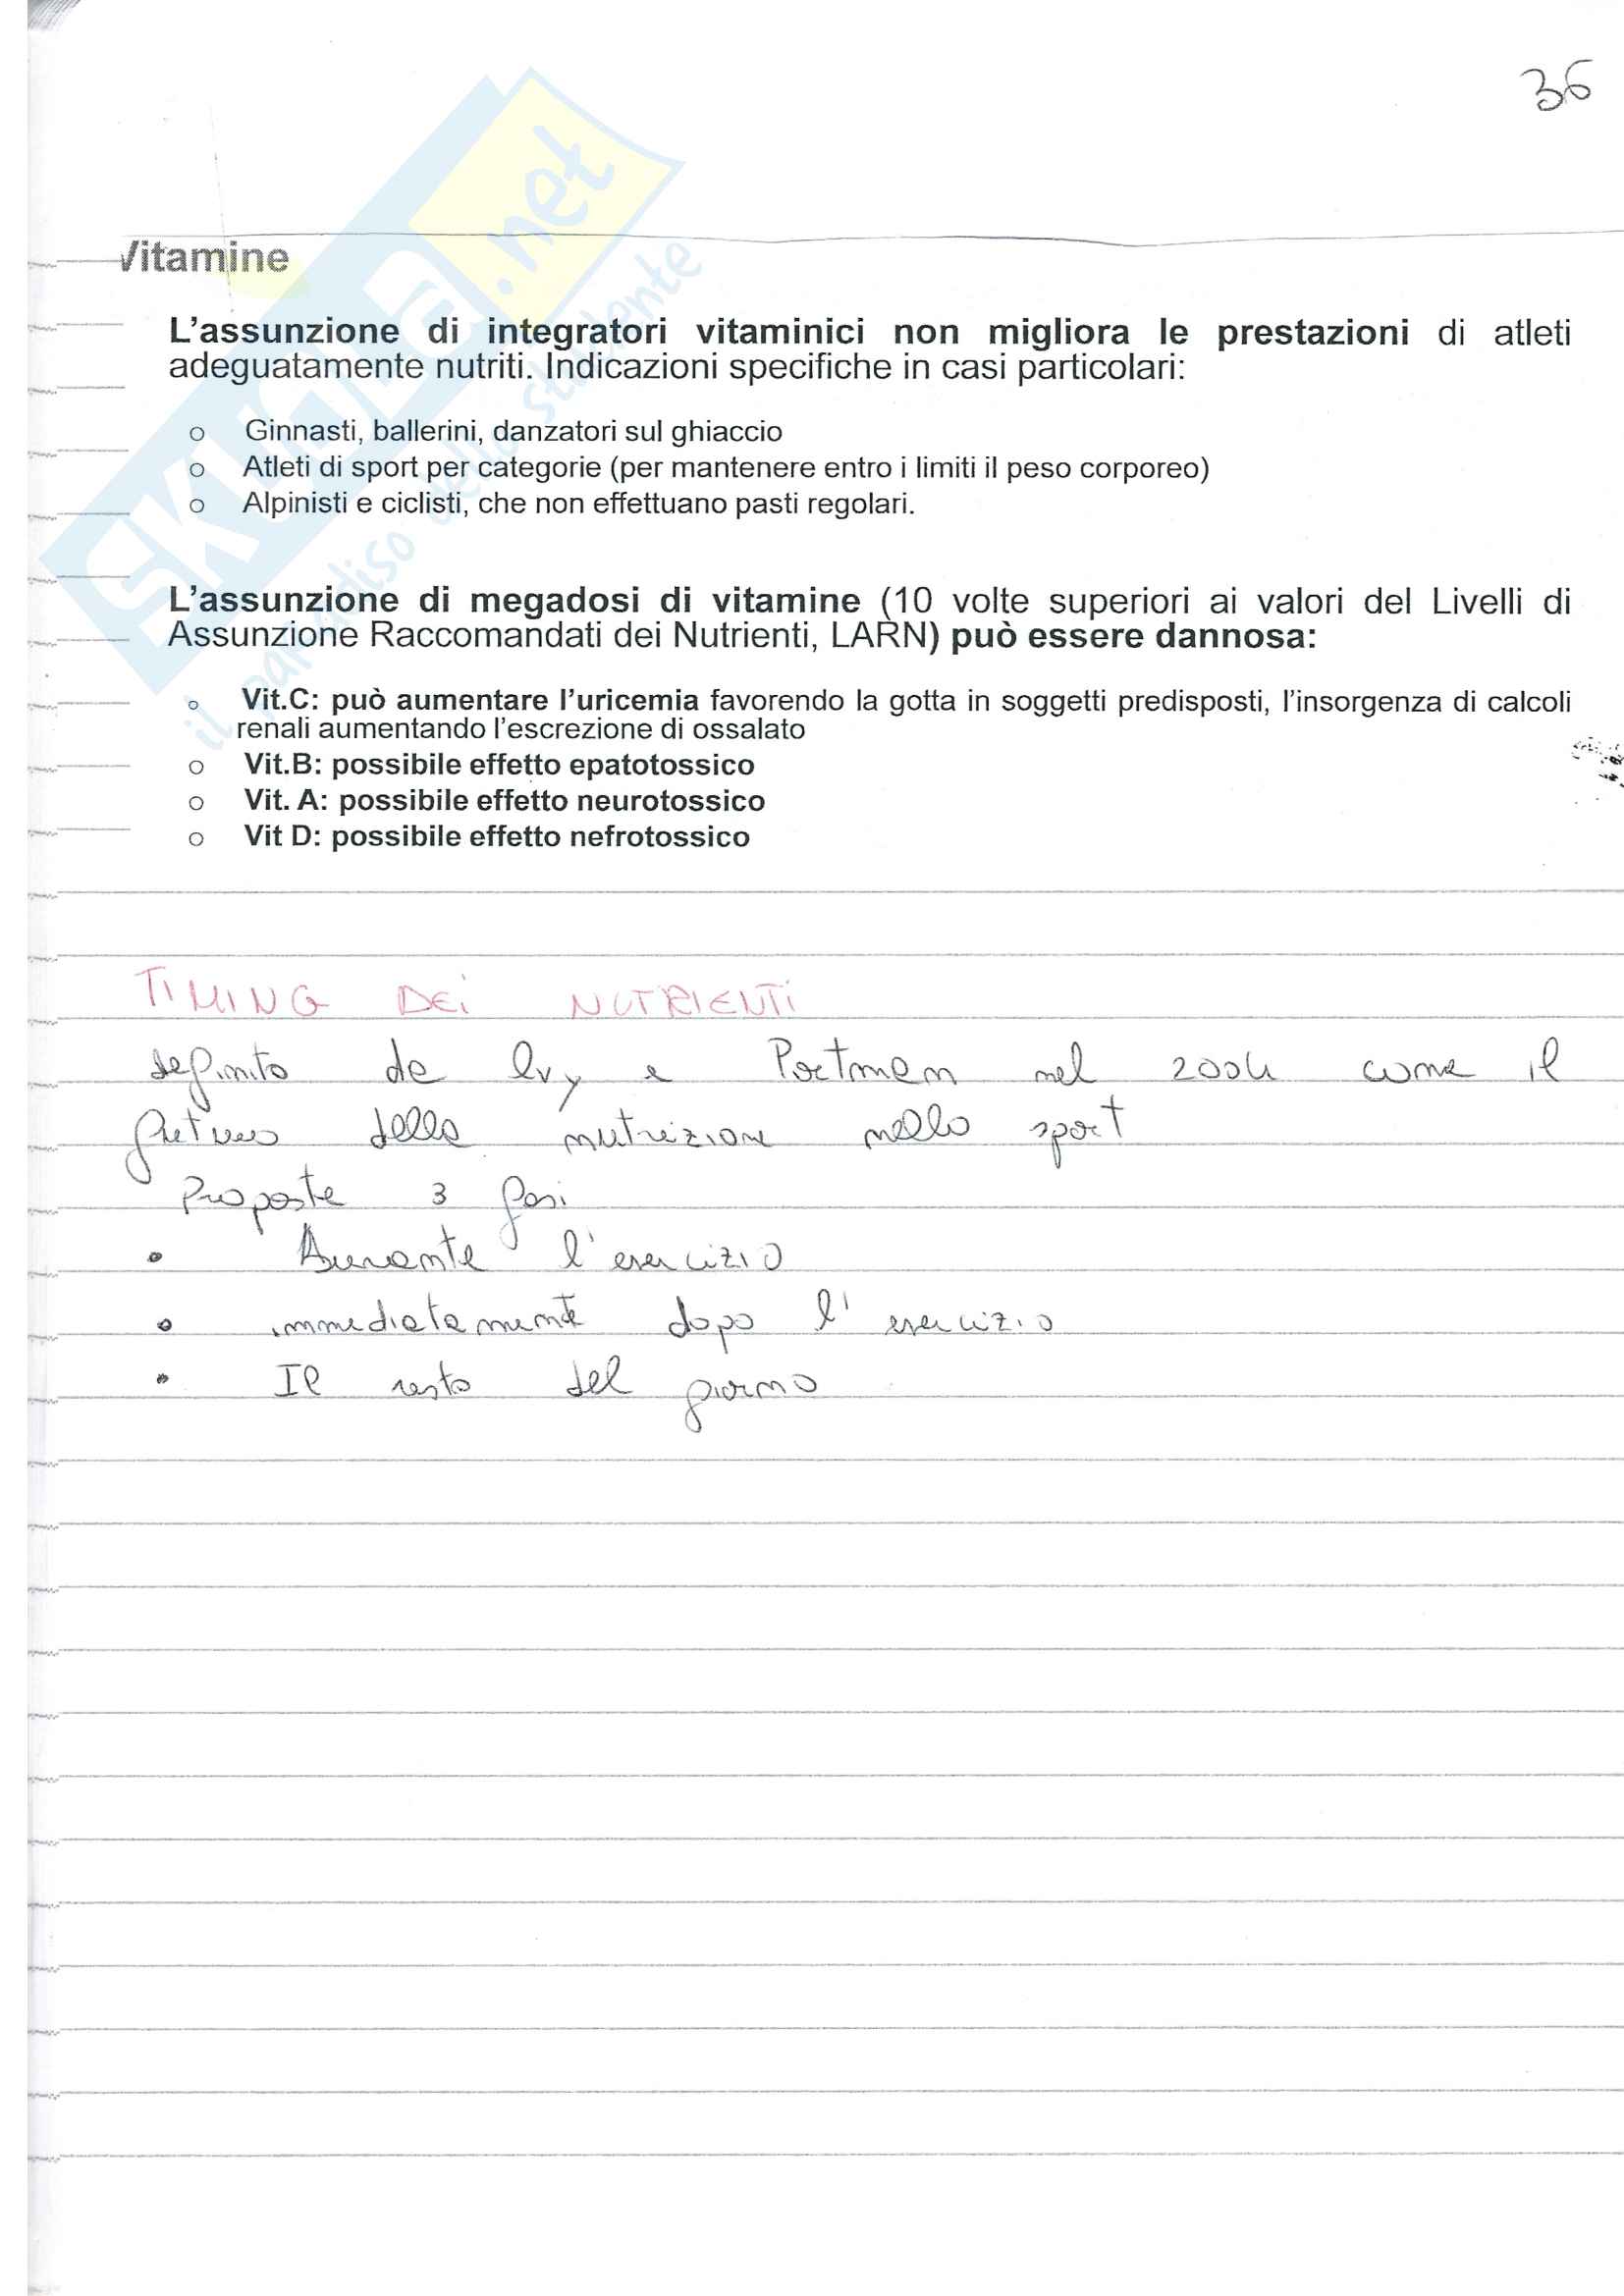 36
Vitamine
L'assunzione di integratori vitaminici non migliora le prestazioni di atleti
adeguatamente nutriti. Indicazioni specifiche in casi particolari:
o Ginnasti, ballerini, danzatori sul ghiaccio
o Atleti di sport per categorie (per mantenere entro i limiti il peso corporeo)
o Alpinisti e ciclisti, che non effettuano pasti regolari.
L'assunzione di megadosi di vitamine (10 volte superiori ai valori del Livelli di
Assunzione Raccomandati dei Nutrienti, LARN) può essere dannosa:
o Vit.C: può aumentare l'uricemia favorendo la gotta in soggetti predisposti, l'insorgenza di calcoli
renali aumentando l'escrezione di ossalato
o Vit.B: possibile effetto epatotossico
o Vit. A: possibile effetto neurotossico
o Vit D: possibile effetto nefrotossico
TIMING DEI NUTRIENTI
definito da Ivy e Portman nel 2004 come il
futuro della nutrizione nello sport
Proposte 3 fasi
• Durante l'esercizio
• immediatamente dopo l'esercizio
• Il resto del giorno
SKUOLA.net
il paradiso dello studente